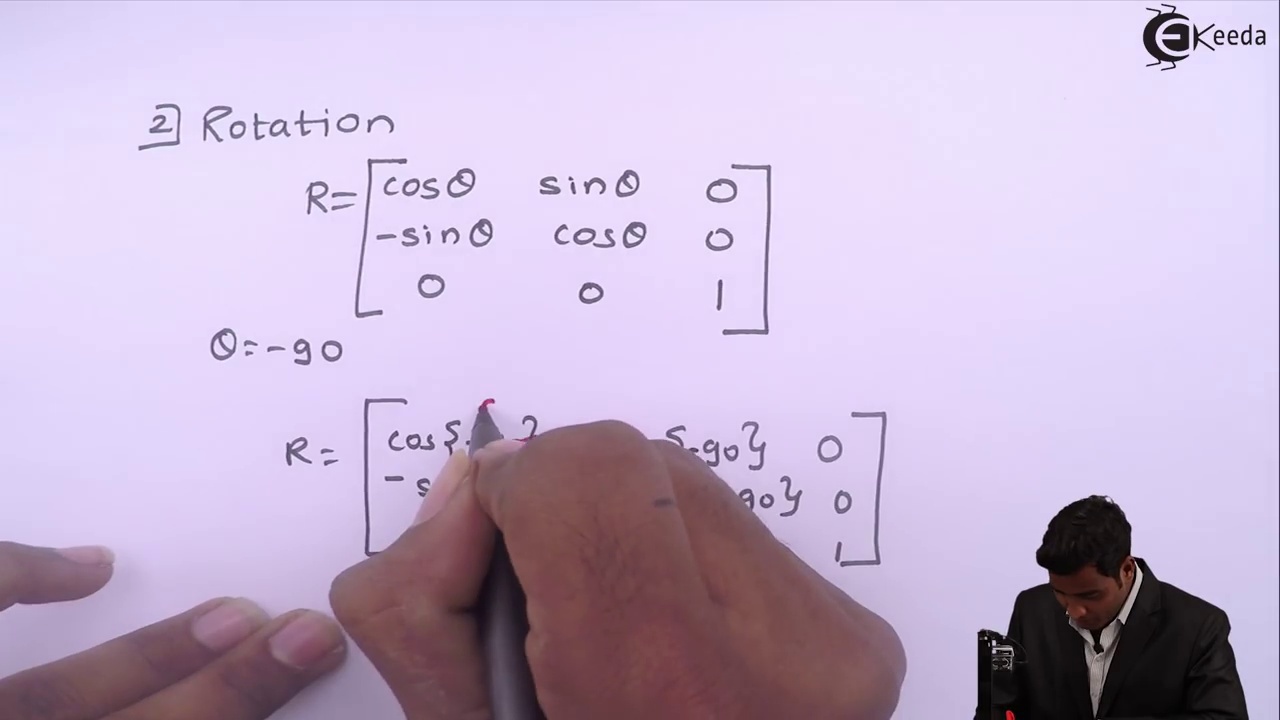 EKeeda
2] Rotation
R= [cosθ sinθ 0
-sinθ cosθ 0
0 0 1]
θ=-90
R= [cos{- } {-90} 0
-s 90} 0
1]